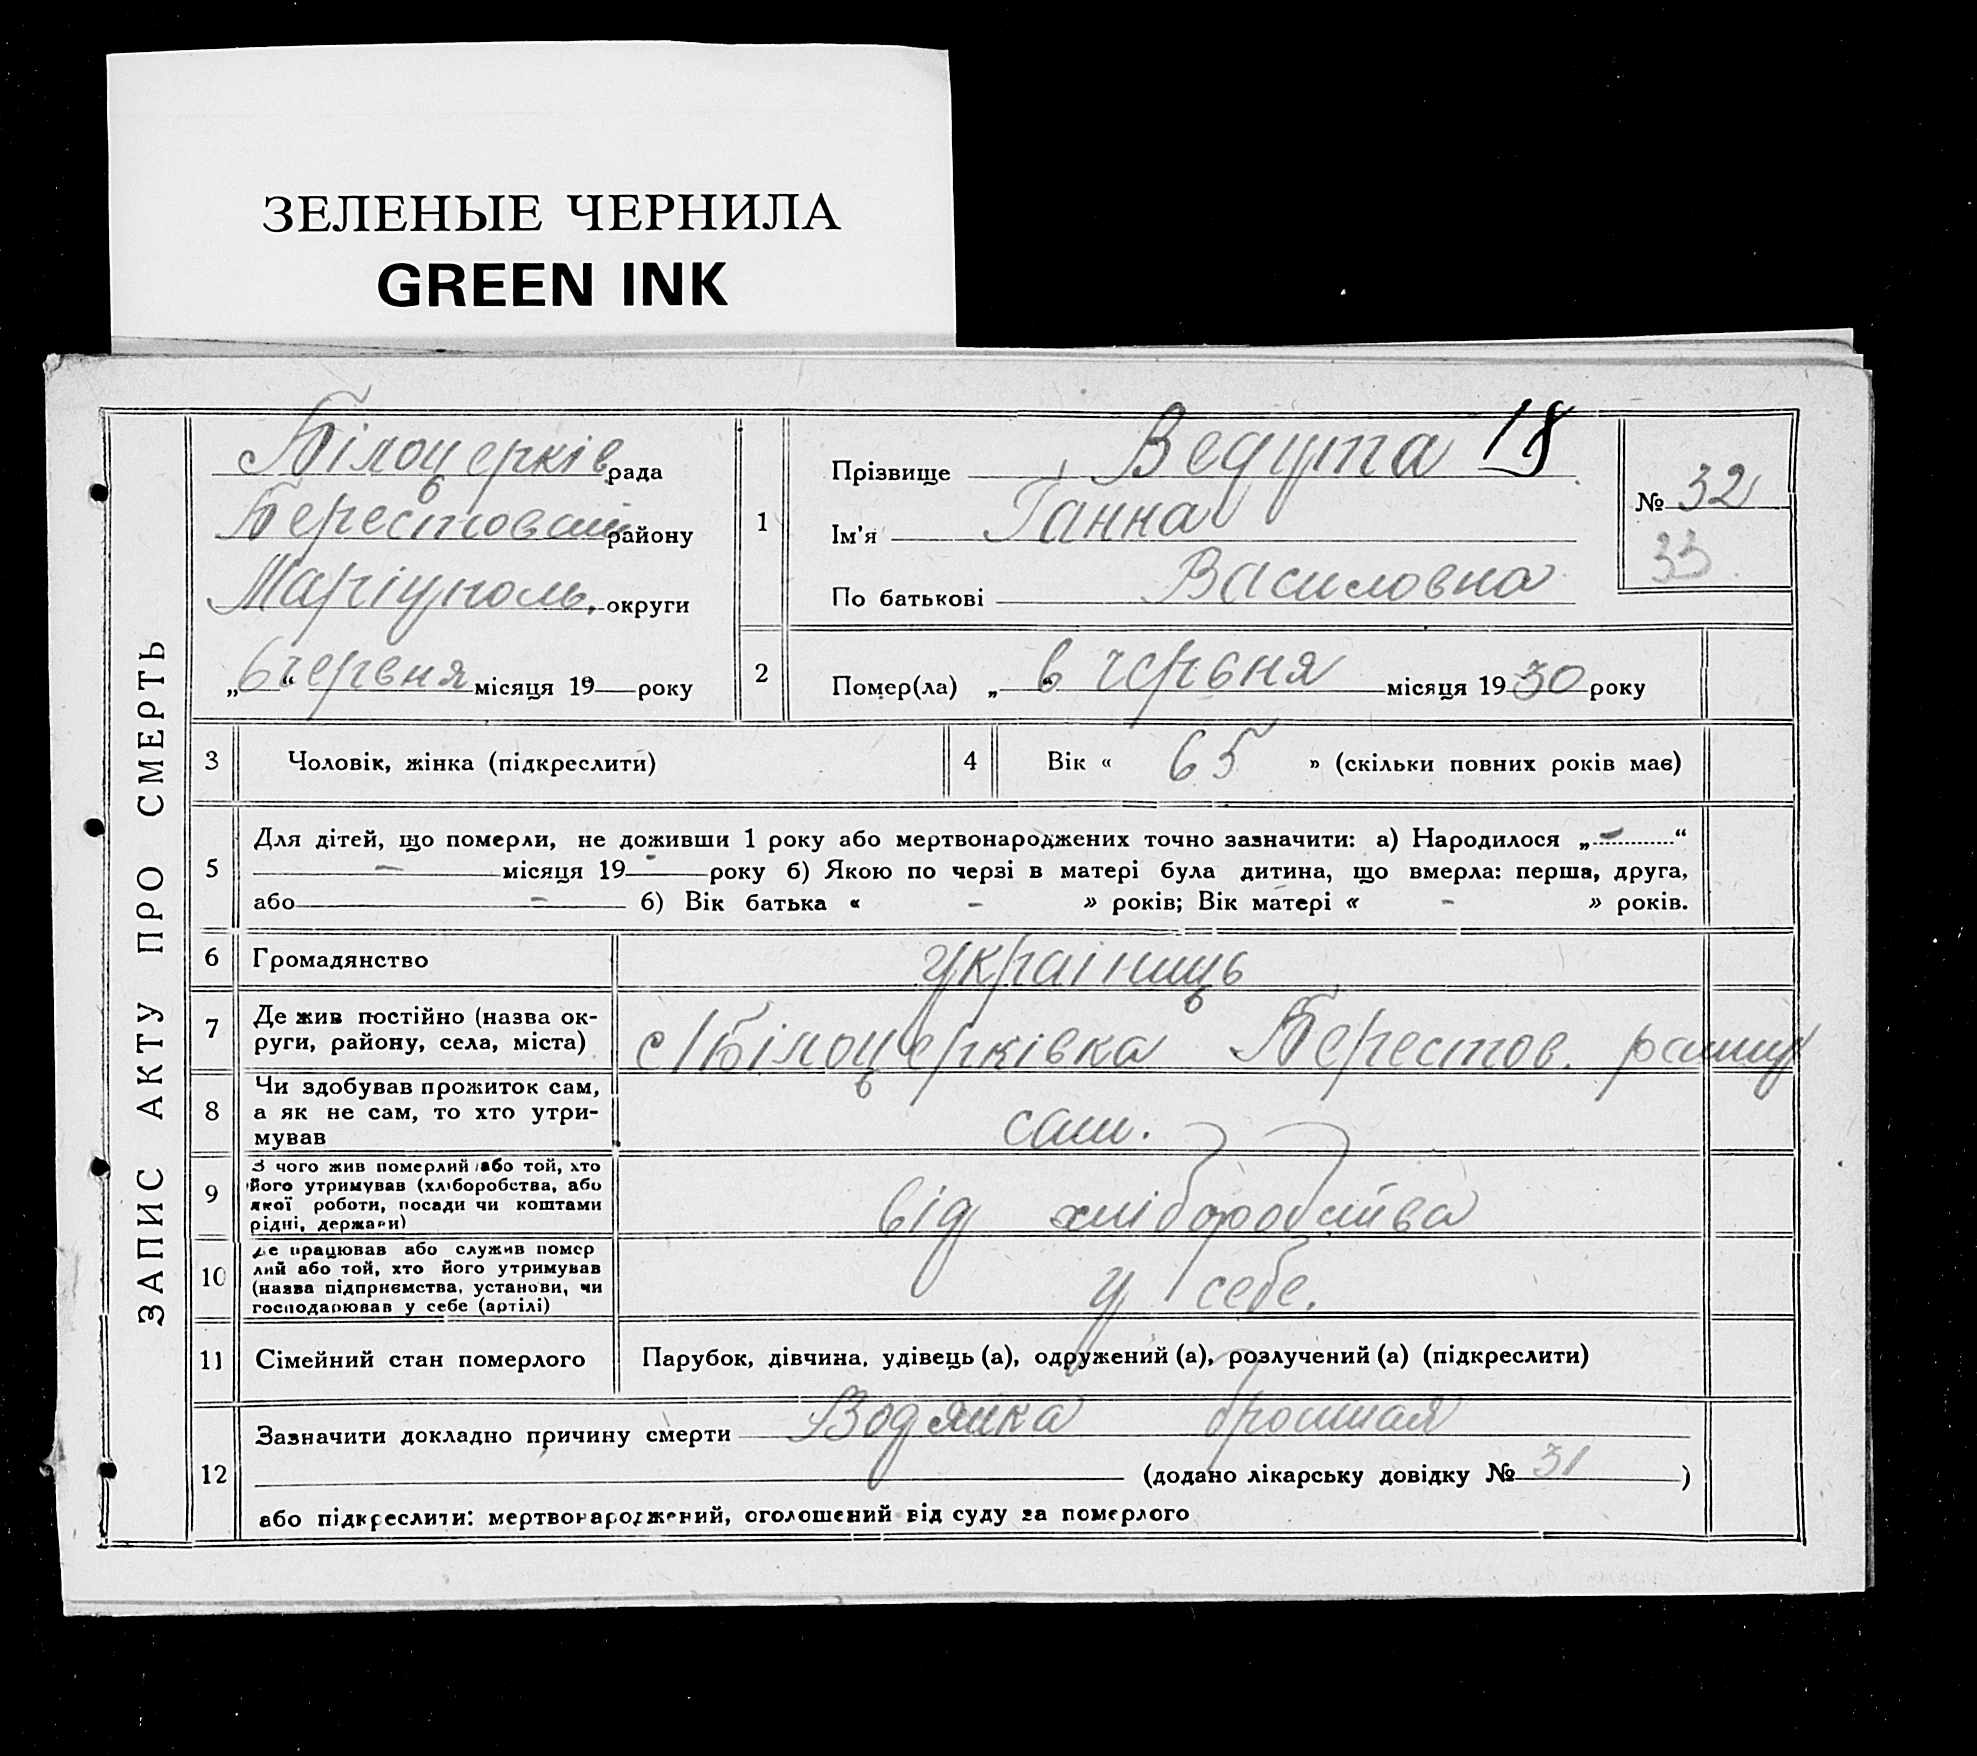 ЗЕЛЕНЫЕ ЧЕРНИЛА
GREEN INK
ЗАПИС АКТУ ПРО СМЕРТЬ
Білоцерків рада
Берестовськ району
Маріуполь. округи
„6“ червня місяця 19 року
1
Прізвище Ведута 18
Ім'я Ганна
По батькові Василовна
№ 32
33
2
Помер(ла) „6“ червня місяця 1930 року
3 Чоловік, жінка (підкреслити)
4 Вік « 65 » (скільки повних років має)
5
Для дітей, що померли, не доживши 1 року або мертвонароджених точно зазначити: а) Народилося „-“
- місяця 19 - року б) Якою по черзі в матері була дитина, що вмерла: перша, друга,
або - б) Вік батька « - » років; Вік матері « - » років.
6 Громадянство україниць
7
Де жив постійно (назва ок-
руги, району, села, міста)
с/Білоцерківка Берестов. району
8
Чи здобував прожиток сам,
а як не сам, то хто утри-
мував
сам.
9
З чого жив померлий або той, хто
його утримував (хліборобства, або
якої роботи, посади чи коштами
рідні, держави)
від хліборобства
10
Де працював або служив помер
лий або той, хто його утримував
(назва підприємства, установи, чи
господарював у себе (артілі)
у себе.
11 Сімейний стан померлого Парубок, дівчина, удівець (а), одружений (а), розлучений (а) (підкреслити)
12
Зазначити докладно причину смерти Водянка
(додано лікарську довідку № 31)
або підкреслити: мертвонароджений, оголошений від суду за померлого